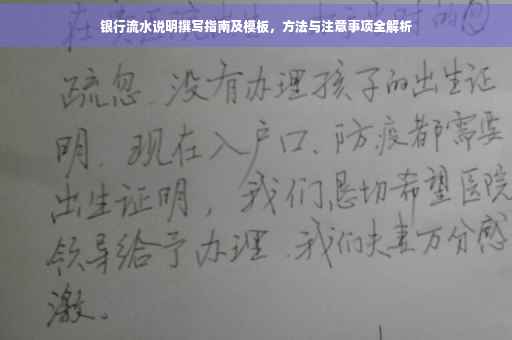 银行流水说明撰写指南及模板，方法与注意事项全解析
疏忽、没有办理孩子的出生证
明、现在入户口、防疫都需要
出生证明，我们恳切希望医院
领导给予办理、我们夫妻万分感
激。